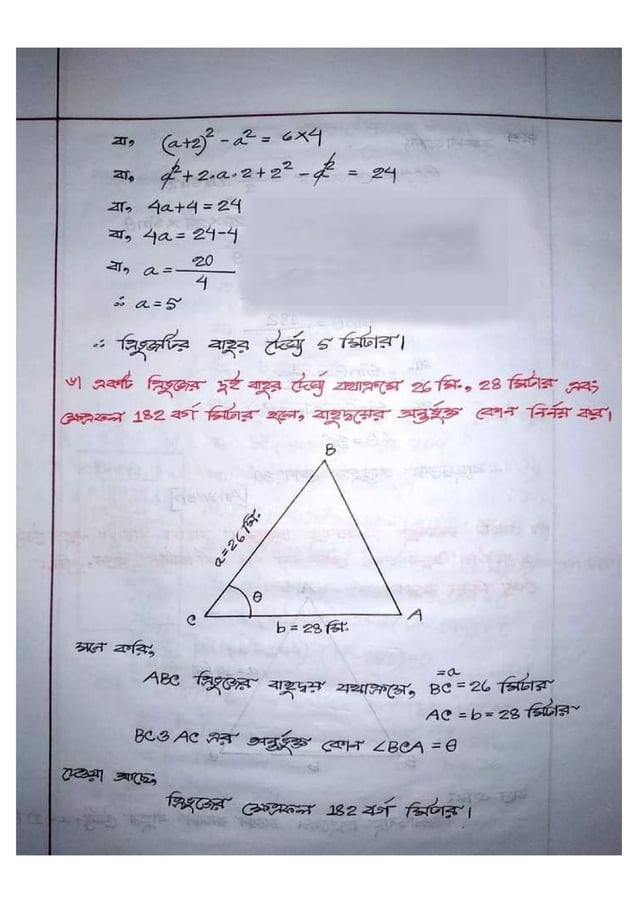 বা, (a+2)² - a² = 6×4
বা, a² + 2.a.2 + 2² - a² = 24
বা, 4a+4 = 24
বা, 4a = 24-4
বা, a = 20/4
∴ a = 5
∴ ত্রিভুজটির বাহুর দৈর্ঘ্য 5 মিটার।
৬) একটি ত্রিভুজের দুই বাহুর দৈর্ঘ্য যথাক্রমে 26 মি., 28 মিটার এবং
ক্ষেত্রফল 182 বর্গ মিটার হলে, বাহুদ্বয়ের অন্তর্ভুক্ত কোন নির্নয় কর।
B
a = 26 মি.
θ
C
A
b = 28 মি.
মনে করি,
ABC ত্রিভুজের বাহুদ্বয় যথাক্রমে, BC =a = 26 মিটার
AC = b = 28 মিটার
BC ও AC এর অন্তর্ভুক্ত কোন ∠BCA = θ
দেওয়া আছে,
ত্রিভুজের ক্ষেত্রফল 182 বর্গ মিটার।